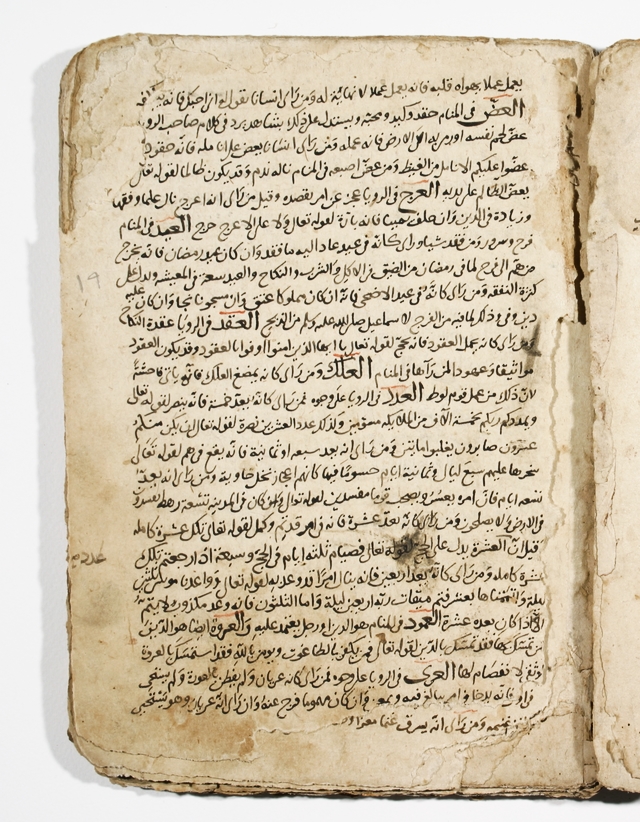 يعمل عملا يهواه قلبه فانه يعمل عملا لا نهاية له ومن راى انسانا يقول له اني احبك فانه
العض في المنام حقد وكيد ومحبة ويستدل على ذلك بشاهد يرد في كلام صاحب الرويا
عض لحم نفسه او رمى به الى الارض فانه ومن راى انسانا يعض على انامله فانه حقود
عضوا عليكم الانامل من الغيظ ومن عض اصبعه في المنام ناله ندم وقد يكون ظالما لقوله تعالى
يعض الظالم على يديه العرج في الرويا عجز عن امر يقصده وقيل من راى انه اعرج نال علما وفقها
وزيادة في الدين وان حلف يمينا فانه بارة لقوله تعالى ولا على الاعرج حرج العيد في المنام
فرح وسرور ومن فقد شيا وراى كانه في عيد عاد اليه ما فقد وان كان عيد رمضان فانه يخرج
من هم الى فرح لما في رمضان من الضيق عن الاكل والشرب والنكاح والعيد سعة في المعيشة
كثرة النفقه ومن راى كانه في عيد الاضحى فانه ان كان مملوكا عتق وان مسجونا نجا وان كان عليه
دين وفي وذلك لما فيه من الفرج لاسماعيل صلى الله عليه وسلم من الذبح العقد في الرويا عقدة النكاح
ومن راى كانه يحل العقود فانه يحج لقوله تعالى يا ايها الذين امنوا اوفوا بالعقود وقد يكون العقود
مواثيقا وعهودا لمن راها في المنام العلك ومن راى كانه يمضغ العلك فانه ياتي فاحشة
لان ذلك من عمل قوم لوط العدد في الرويا على وجوه فمن راى كانه يعد خمسة فانه ينصر لقوله تعالى
ويمددكم ربكم بخمسة الاف من الملايكه مسومين وكذلك عدد العشرين نصرة لقوله تعالى ان يكن منكم
عشرون صابرون يغلبوا ماتين ومن راى انه يعد سبعه او ثمانية فانه يقع في هم لقوله تعالى
سخرها عليهم سبع ليال وثمانية ايام حسوما فيها كانهم اعجاز نخل خاوية ومن راى انه يعد
تسعه ايام فان امره يعسر ويصحب قوما مفسدين لقوله تعالى وكان في المدينه تسعة رهط يفسدون
في الارض ولا يصلحون ومن راى كانه يعد عشرة فانه في امر قد تم وكمل لقوله تعالى تلك عشرة كاملة
قيل ان العشرة يدل على الحج لقوله تعالى فصيام ثلثة ايام في الحج وسبعة اذا رجعتم تلك
عشرة كامله ومن راى كانه يعد اربعين فانه ينال امرا قد وعد به لقوله تعالى وواعدنا موسى ثلثين
ليلة واتممناها بعشر فتم ميقات ربه اربعين ليلة واما الثلثون فانه وعد مكذوب لا يتم
الا اذا كان بعده عشرة العمود في المنام هو الدين او رجل يعتمد عليه والعروة ايضا هو الدين
من تمسك بها فقد تمسك بالدين لقوله تعالى فمن يكفر بالطاغوت ويومن بالله فقد استمسك بالعروة
الوثقى لا انفصام لها العرى في الرويا على وجوه فمن راى كانه عريان ولم يفطن بالعورة ولم يستحي
فانه يدخل في امر يبالغ فيه وان كان مهموما فرج عنه وان راى انه عريان وهو يستحي
ومن راى انه يسرق
عدد
19